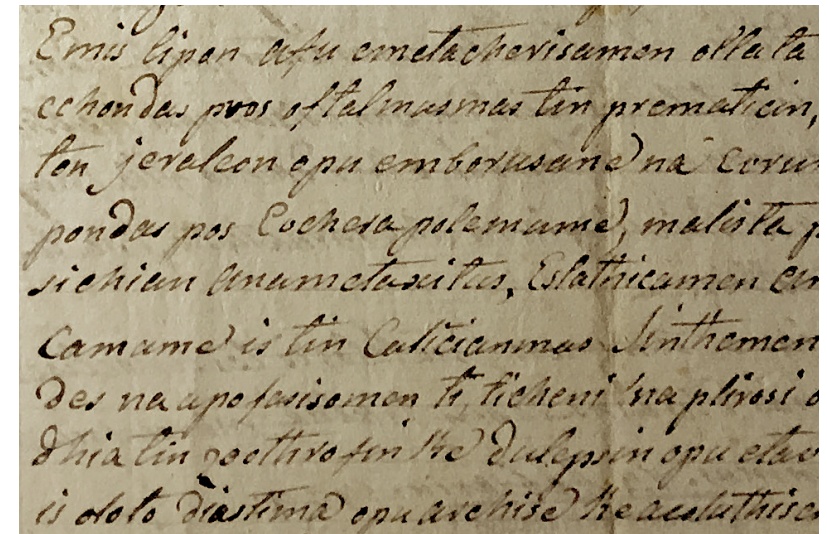 Emis lipon afu emetacherisamen olla ta
echondas pros oftalmusmas tin prematicin,
ton jeraleon opu emborusane na
pondas pos Eochera polemume, malista
sichian anametaxitus, Estathicamen
Camame is tin Caticianmas Sinthemen
des na apofasisomen ti, ticheni na plirosi
dhia tin zoothrofin ke dulepsin opu
is oloto diastima opu archise ke